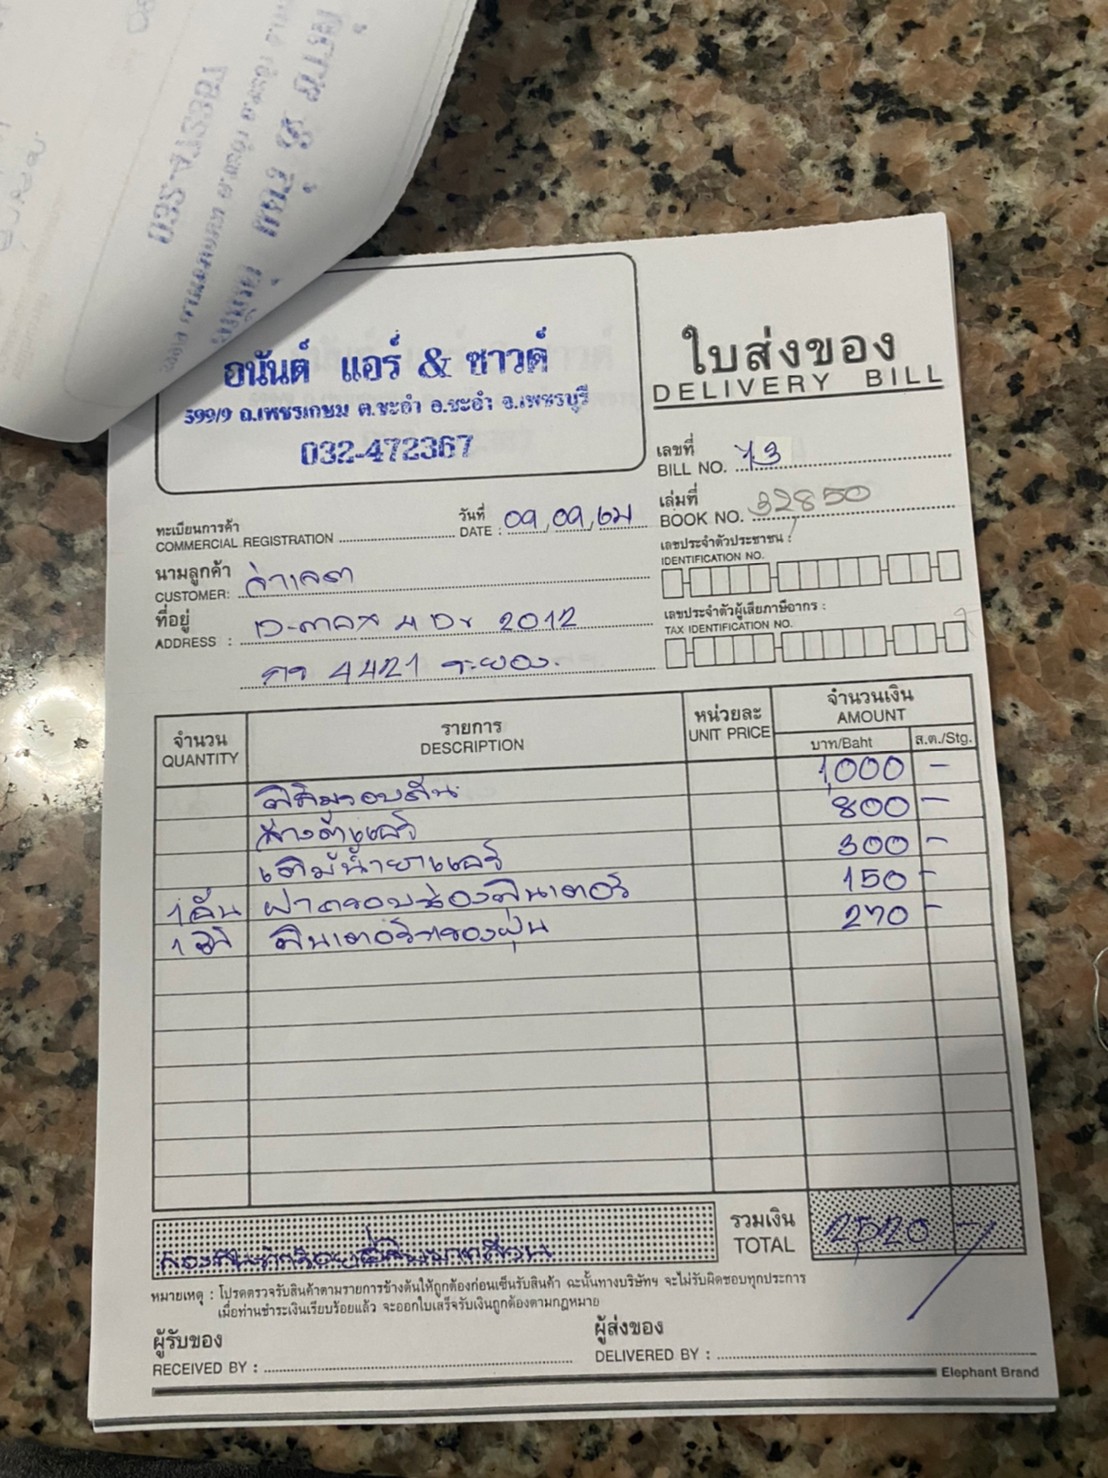 อนันต์ แอร์ & ซาวด์
599/9 ถ.เพชรเกษม ต.ชะอำ อ.ชะอำ จ.เพชรบุรี
032-472367
ใบส่งของ
DELIVERY BILL
เลขที่
BILL NO. 13
เล่มที่
BOOK NO. 32850
ทะเบียนการค้า
COMMERCIAL REGISTRATION
วันที่
DATE : 09,09,
เลขประจำตัวประชาชน :
IDENTIFICATION NO.
นามลูกค้า
CUSTOMER:
ที่อยู่
ADDRESS : 2012
4421 ระยอง.
เลขประจำตัวผู้เสียภาษีอากร :
TAX IDENTIFICATION NO.
จำนวน
QUANTITY
รายการ
DESCRIPTION
หน่วยละ
UNIT PRICE
จำนวนเงิน
AMOUNT
บาท/Baht
ส.ต./Stg.
1,000 -
ล้างตู้แอร์ 800 -
เติมน้ำยาแอร์ 300 -
1 อัน ฝาครอบช่องฟินเตอร์ 150 -
1 ฟินเตอร์กรองฝุ่น 270 -
รวมเงิน
TOTAL 2,520 -
หมายเหตุ : โปรดตรวจรับสินค้าตามรายการข้างต้นให้ถูกต้องก่อนเซ็นรับสินค้า ฉะนั้นทางบริษัทฯ จะไม่รับผิดชอบทุกประการ
เมื่อท่านชำระเงินเรียบร้อยแล้ว จะออกใบเสร็จรับเงินถูกต้องตามกฎหมาย
ผู้รับของ
RECEIVED BY :
ผู้ส่งของ
DELIVERED BY :
Elephant Brand